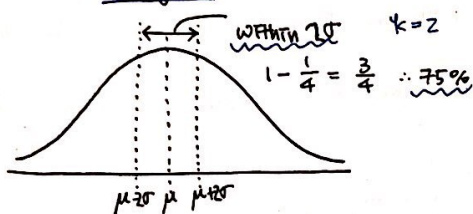 within 2σ k=2
1 - 1/4 = 3/4 ∴ 75%
μ-2σ μ μ+2σ